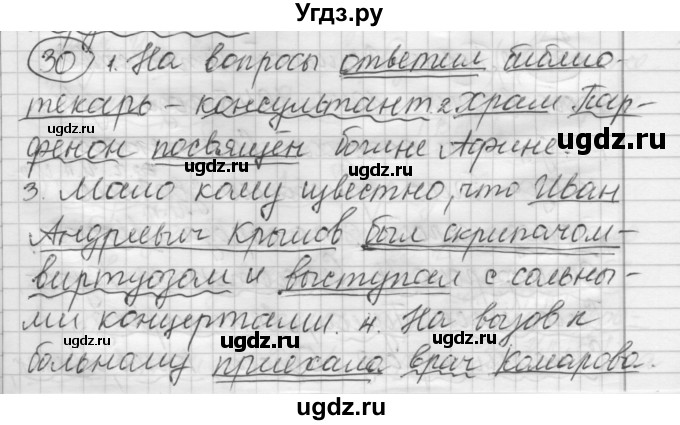 Угдз.ру
30 1. На вопросы ответил библио-
текарь - консультант 2 Храм Пар-
фенон посвящён богине Афине.
3. Мало кому известно, что Иван
Андреевич Крылов был скрипачом-
виртуозом и выступал с сольны-
ми концертами. 4. На вызов к
больному приехала врач Комарова.
ugdz.ru
ugdz.ru
ugdz.ru
ugdz.ru
ugdz.ru
ugdz.ru
ugdz.ru
ugdz.ru
ugdz.ru
ugdz.ru
ugdz.ru
ugdz.ru
ugdz.ru